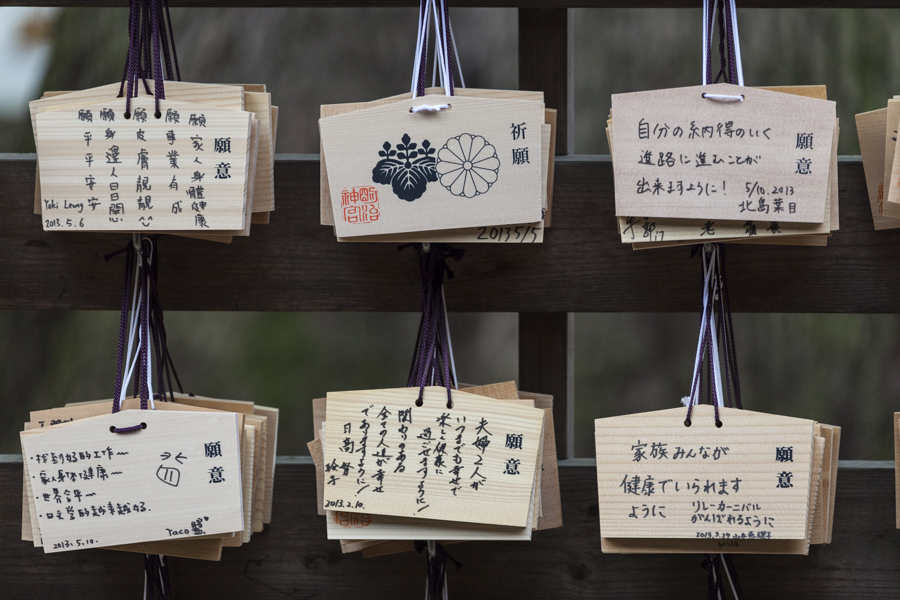 願意
願 家人身體健康
願 事業有成
願 皮膚靚靚
願 身邊人日日開心
願 平平安安
Yoki Leung
2013.5.6
祈願
明治神宮
2013 5/5
願意
自分の納得のいく
進路に進むことが
出来ますように!
5/10.2013
北島葉月
願意
・找到好的工作~
・家人身体健康~
・世界合平~
・日文学的越来越好.
Yaco
2013.5.10.
願意
夫婦2人が
いつまでも幸せで
楽しく健康に
過ごせますように!
関わりのある
全ての人達が幸せ
でありますように!
日高
2013.2.10.
願意
家族みんなが
健康でいられます
ように
リレーカーニバル
がんばれるように
2013.3.29